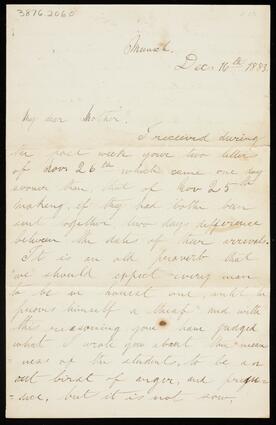 3876.2060
Munich.
Dec. 16th 1883
My dear Mother.
I received during
the past week your two letters
of Nov 26th which came one day
sooner than that of Nov 25th
making, if they had both been
sent together, two days difference
between the date of their arrivals.
It is an old proverb that
"we should expect every man
to be an honest one, until he
proves himself a theaf" and with
this reasoning you have judged
what I wrote you about the mean
ness of the students, to be an
out birst of anger, and preju-
dice, but it is not sow.